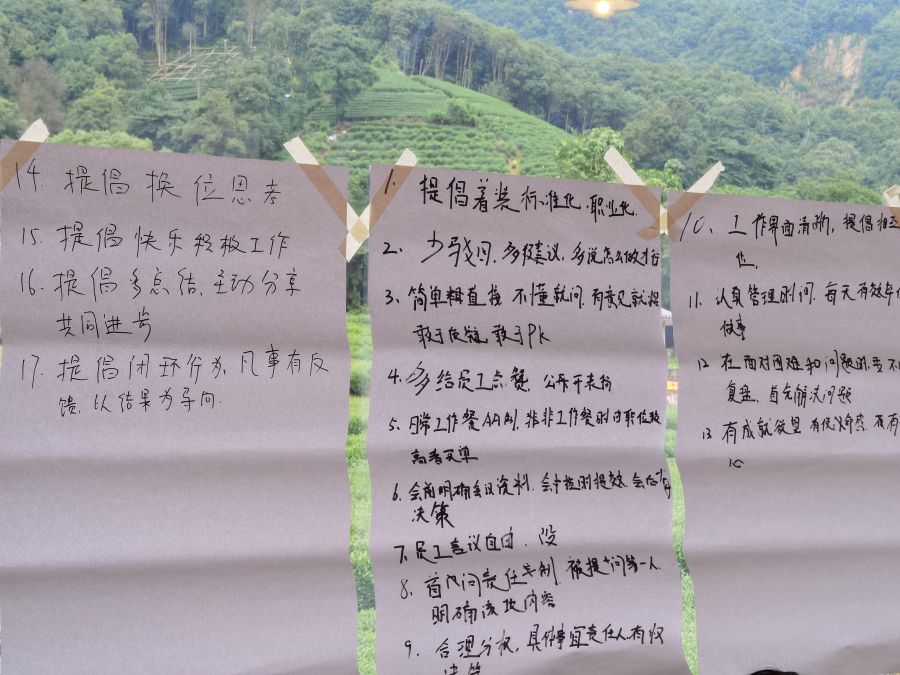 14. 提倡换位思考
15. 提倡快乐积极工作
16. 提倡多总结、主动分享
共同进步
17. 提倡闭环行为, 凡事有反
馈, 以结果为导向.
1. 提倡着装标准化、职业化.
2. 少残问, 多提建议, 多说怎么做才行
3、简单粗直接, 不懂就问, 有意见就提
敢于反馈, 敢于PK
4. 多给员工点餐, 公开表扬
5、日常工作餐AA制, 非工作餐时由职位较
高者买单
6、会前明确会议资料, 会中控制提效, 会后
决策
7、员工言议自由、没
8、首次问责任制, 被提问第一人
明确该项内容
9、合理分权, 具体事宜责任人有权
决策
10、工作界面清晰, 提倡相互
位,
11、认真管理时间, 每天有效率
做事
12 在面对困难和问题时要不
复盘, 首先解决问题
13 有成就欲望 有使命感, 要有
心